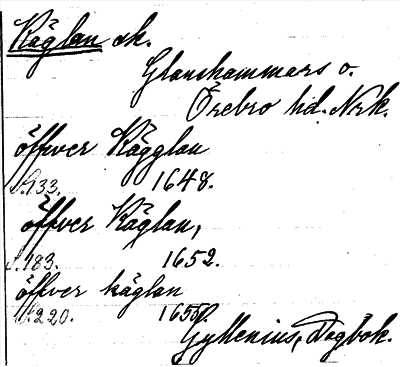 Käglan sk.
Glanshammars o.
Örebro hd. Nrk.
öffver Kägglan
S.133. 1648.
öffver Käglan,
S.183. 1652.
öffver käglan
S.220. 165
Gyllenius, Dagbok.